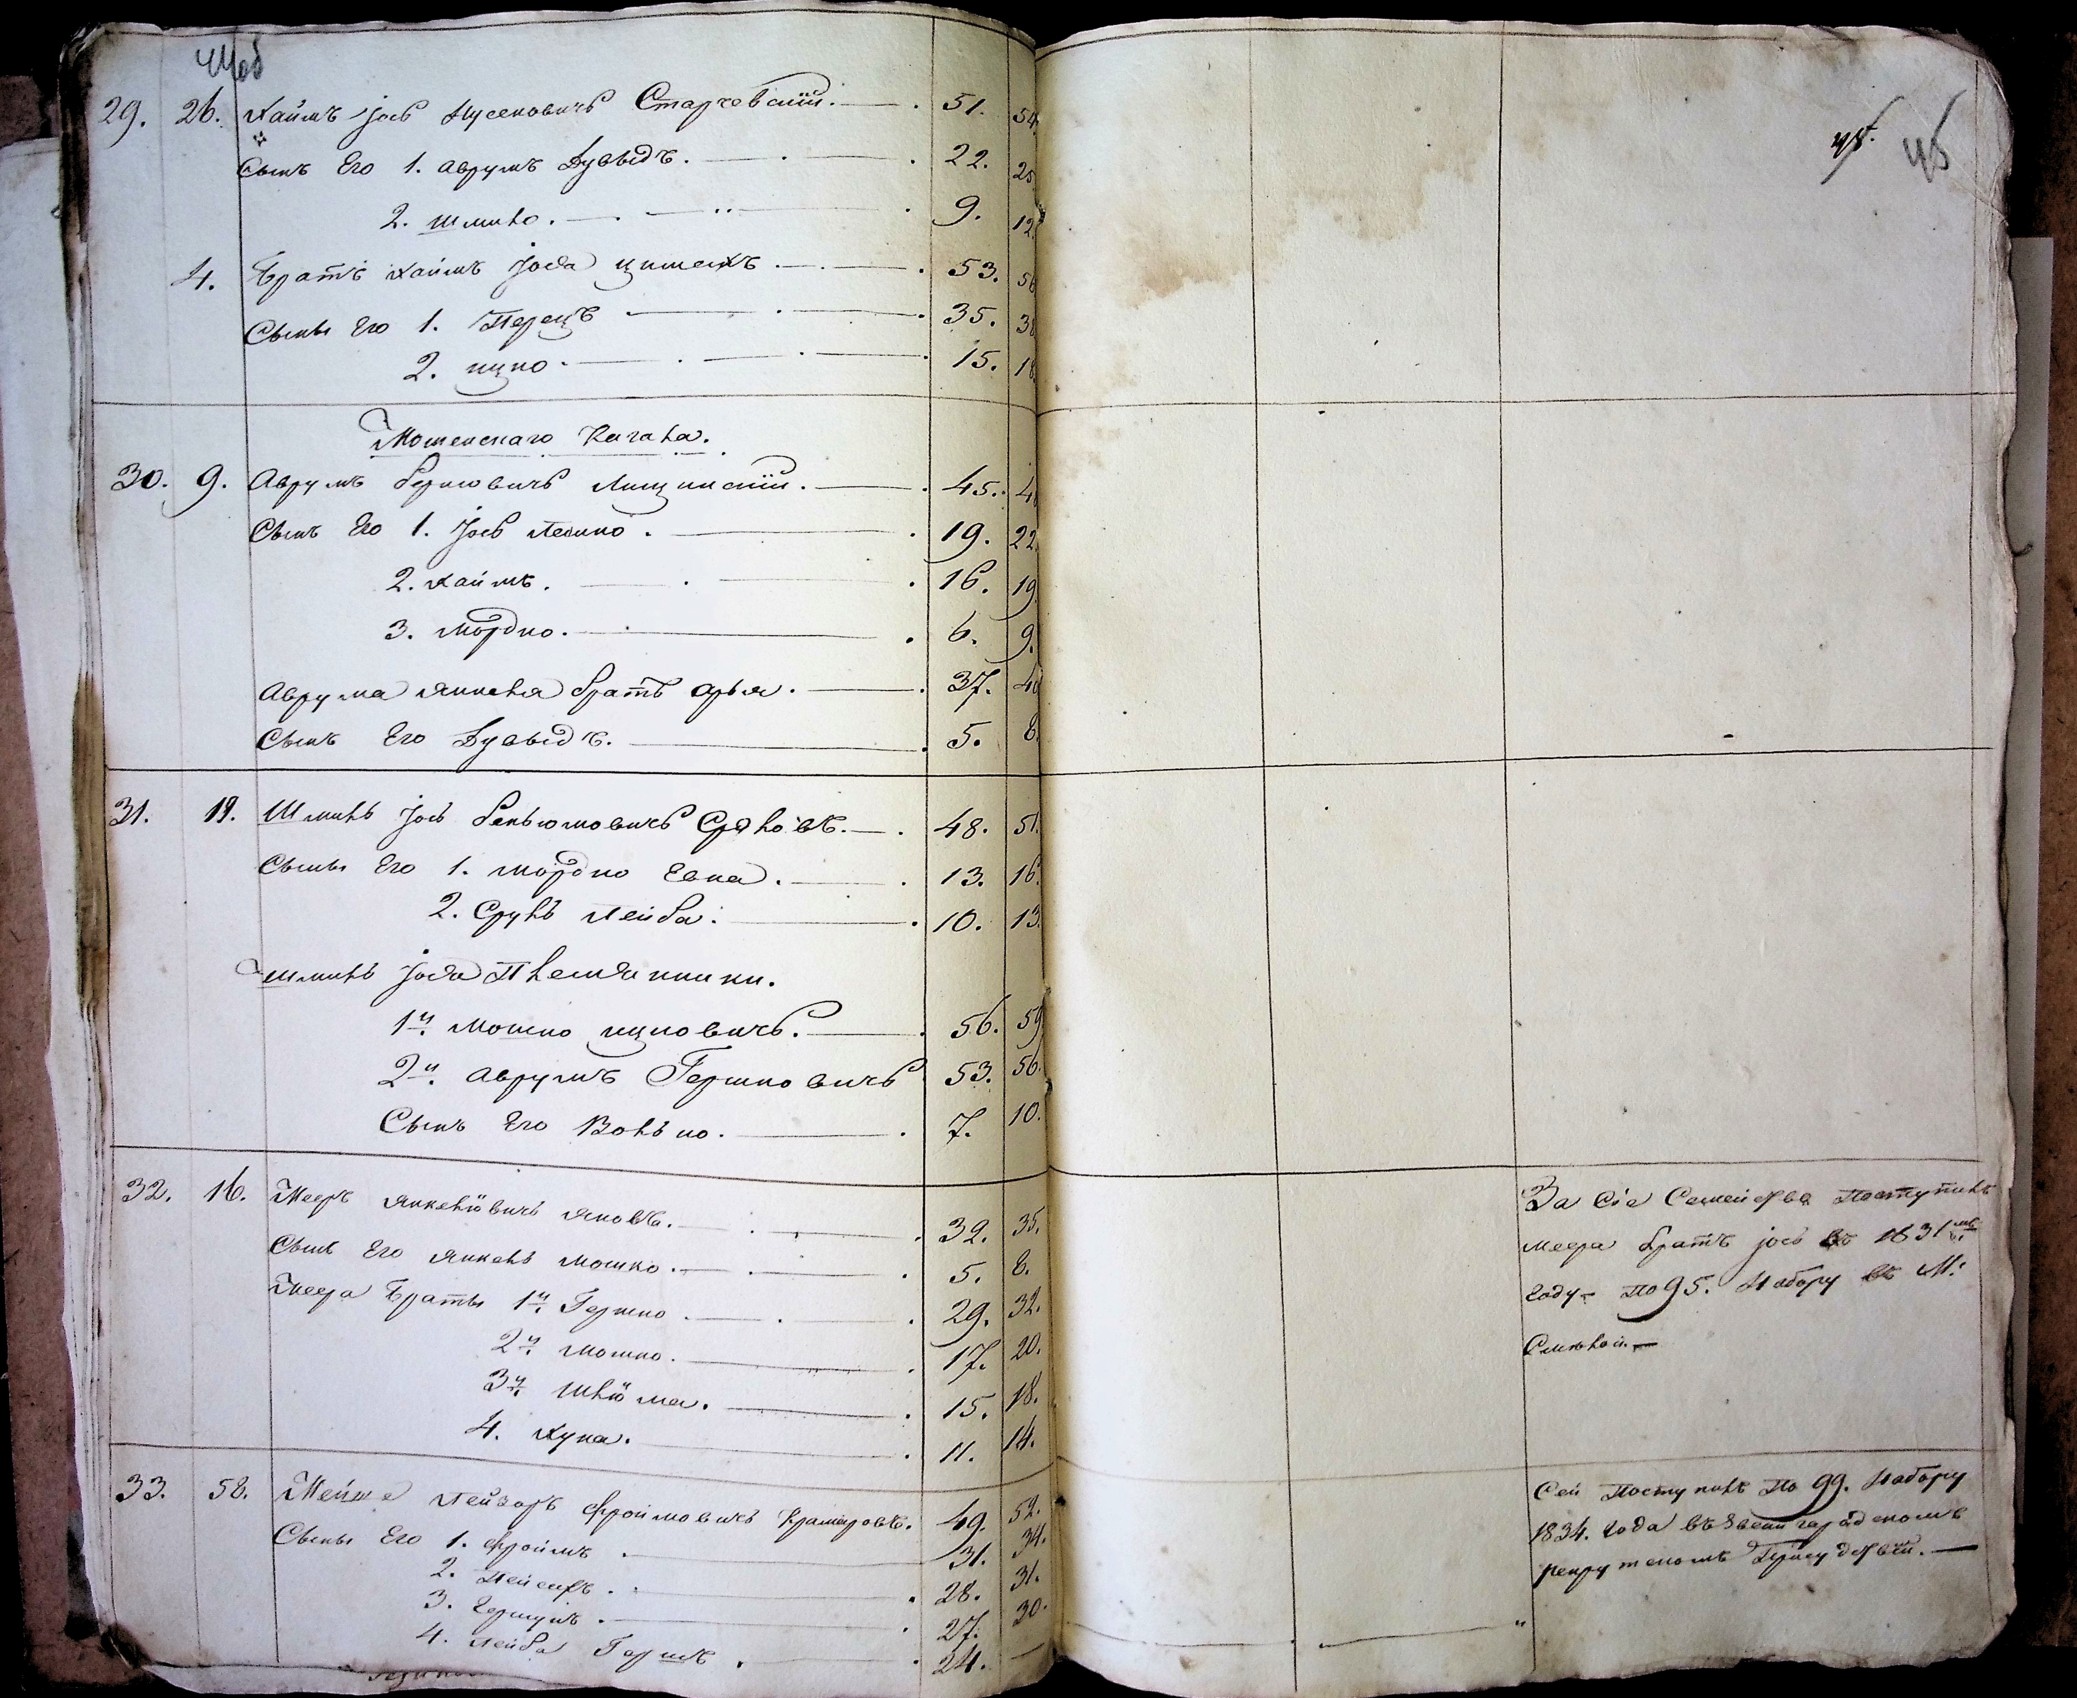 29. 26. Хаимъ Іось Нусеновичь Старчевскій. 51. 54
Сынъ Его 1. Аврумъ Дувыдъ. 22. 25
2. Шлиио. 9. 12.
4. Братъ Хаимъ Іося 53. 56
Сыны Его 1. Перецъ 35. 38
2. ицко. 15. 18.
Мошенскаго Кагала.
30. 9. Аврумъ Берковичь Лищинскій. 45. 4
Сынъ Его 1. Іось Лейко. 19. 22.
2. Хаимъ. 16. 19
3. Мордко. 6. 9.
Аврума Янкеля братъ Арья. 37. 40
Сынъ Его Дувыдъ. 5. 8.
31. 19. Шмиль Іось Беньюмовичь 48. 51.
Сыны Его 1. Мордко 13. 16.
2. Сруль Лейба. 10. 13.
Шмиль Іося Племянники.
1й. Мошко ицковичь. 56. 59
2й. Аврумъ Гершковичь 53. 56.
Сынъ Его Волько. 7. 10.
32. 16. Мееръ Янкелювичь Яновъ. 32. 35.
Сынъ Его Янкель Мошко. 5. 8.
Меера Браты 1й. Гершко 29. 32.
2й. Мошко. 17. 20.
3й. Шлюма. 15. 18.
4. Хуна. 11. 14.
33. 58. Мейше Лейзоръ Фроимовичь Крамаровъ. 49. 52.
Сыны Его 1. Фроимъ 31. 34.
2. Лейзеръ. 28. 31.
3. Гершунъ. 27. 30.
4. Лейба Гершъ. 24.
За Сіе Семейство Поступилъ
Меера братъ Іось въ 1831мъ
году По 95. Набору въ М:
Смѣлой.
Сей Поступилъ По 99. Набору
1834. года въ Звенигородскомъ
рекрутскомъ Присудствіи.